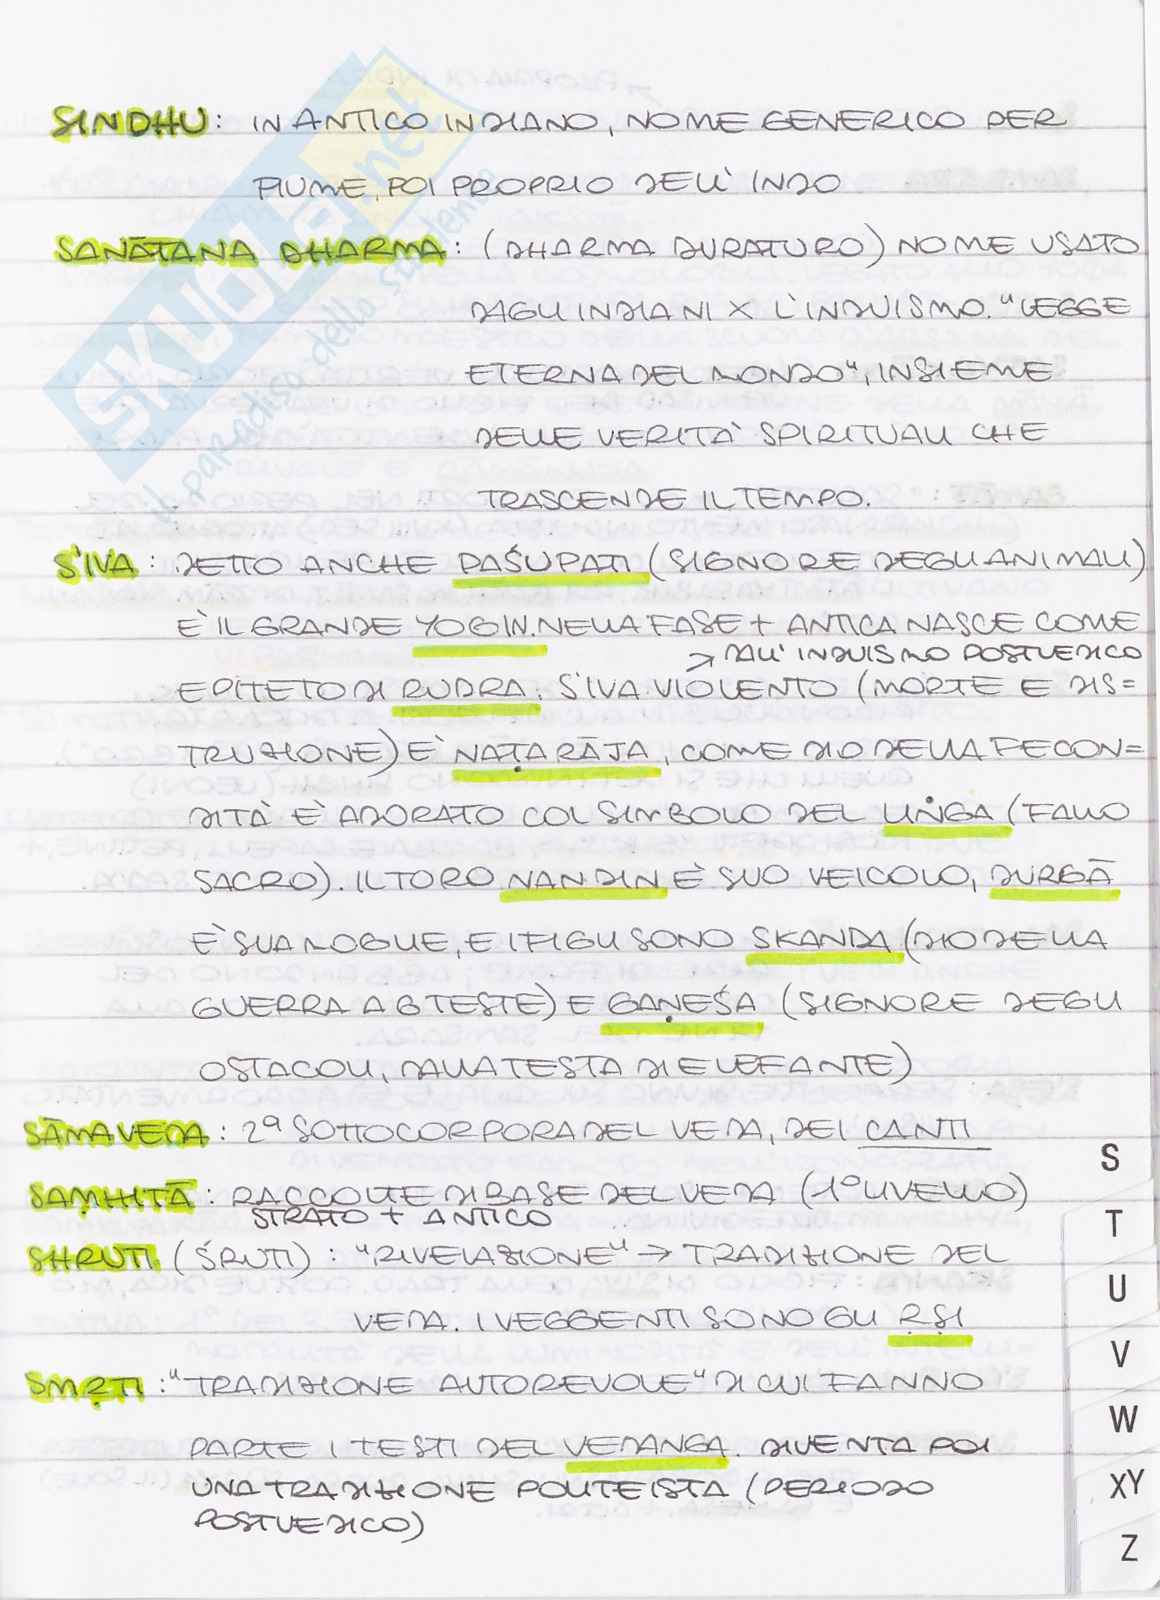 SINDHU: IN ANTICO INDIANO, NOME GENERICO PER
FIUME, POI PROPRIO DELL'INDO
SANĀTANA DHARMA: (DHARMA DURATURO) NOME USATO
DAGLI INDIANI X L'INDUISMO. "LEGGE
ETERNA DEL MONDO", INSIEME
DELLE VERITÀ SPIRITUALI CHE
TRASCENDE IL TEMPO.
S'IVA: DETTO ANCHE PAŚUPATI (SIGNORE DEGLI ANIMALI)
È IL GRANDE YOGIN. NELLA FASE + ANTICA NASCE COME
→ DALL'INDUISMO POSTVEDICO
EPITETO DI RUDRA. S'IVA VIOLENTO (MORTE E DIS=
TRUZIONE) È NAṬARĀJA, COME DIO DELLA FECON=
DITÀ È ADORATO COL SIMBOLO DEL LIṄGA (FALLO
SACRO). IL TORO NANDIN È SUO VEICOLO, DURGĀ
È SUA MOGLIE, E I FIGLI SONO SKANDA (DIO DELLA
GUERRA A 6 TESTE) E GAṆEŚA (SIGNORE DEGLI
OSTACOLI, DALLA TESTA DI ELEFANTE)
SĀMAVEDA: 2ª SOTTOCORPORA DEL VEDA, DEI CANTI
SAṂHITĀ: RACCOLTE DI BASE DEL VEDA (1° LIVELLO)
STRATO + ANTICO
SHRUTI (ŚRUTI): "RIVELAZIONE" → TRADIZIONE DEL
VEDA. I VEGGENTI SONO GLI ṚṢI
SMṚTI: "TRADIZIONE AUTOREVOLE" DI CUI FANNO
PARTE I TESTI DEL VEDANGA. DIVENTA POI
UNA TRADIZIONE POLITEISTA (PERIODO
POSTVEDICO)
S
T
U
V
W
XY
Z
SKUOLA.net
il paradiso dello studente